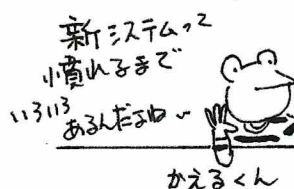 新システムって
慣れるまで
いろいろ
あるんだよね〜
かえるくん